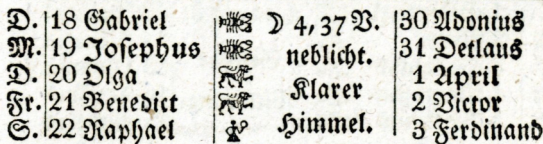 D. 18 Gabriel ☽ 4, 37 V. 30 Adonius
M. 19 Josephus neblicht. 31 Detlaus
D. 20 Olga Klarer 1 April
Fr. 21 Benedict 2 Victor
S. 22 Raphael Himmel. 3 Ferdinand